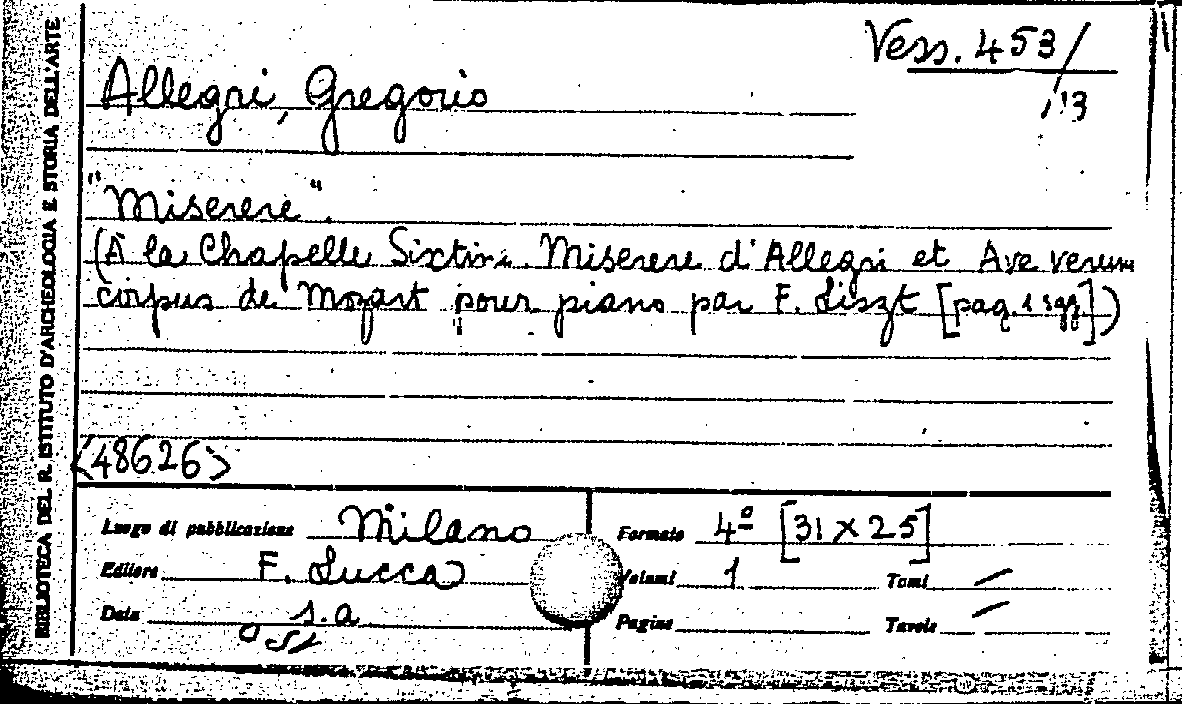 BIBLIOTECA DEL R. ISTITUTO D'ARCHEOLOGIA E STORIA DELL'ARTE
Vess. 453/
13
Allegri, Gregorio
"Miserere".
(À la Chapelle Sixtine. Miserere d'Allegri et Ave verum
corpus de Mozart pour piano par F. Liszt [pag. 1 sgg.])
<48626>
Luogo di pubblicazione Milano
Formato 4º [31 x 25]
Editore F. Lucca
Volumi 1 Tomi /
Data s.a
Pagine Tavole /